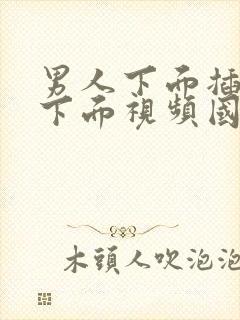 男人下而插
下而視頻國
木頭人吹泡泡